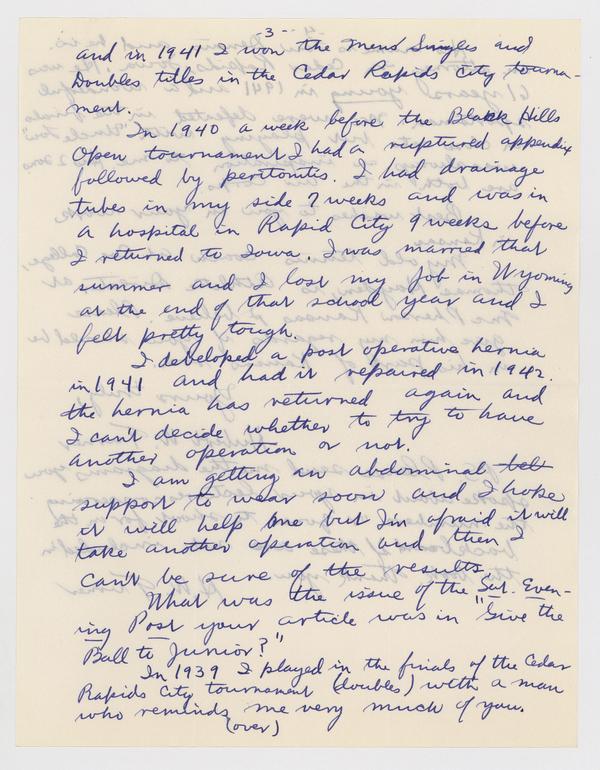 3 -
and in 1941 I won the mens Singles and
Doubles titles in the Cedar Rapids city tourna-
ment.
In 1940 a week before the Black Hills
Open tournament I had a ruptured appendix
followed by peritonitis. I had drainage
tubes in my side 7 weeks and was in
a hospital in Rapid City 9 weeks before
I returned to Iowa. I was married that
summer and I lost my job in Wyoming
at the end of that school year and I
felt pretty tough.
I developed a post operative hernia
in 1941 and had it repaired in 1942.
the hernia has returned again and
I can't decide whether to try to have
another operation or not.
I am getting an abdominal belt
support to wear soon and I hope
it will help me but I'm afraid it will
take another operation and then I
can't be sure of the results.
What was the issue of the Sat. Even-
ing Post your article was in "Give the
Ball to Junior?"
In 1939 I played in the finals of the Cedar
Rapids City tournament (doubles) with a man
who reminds me very much of you.
(over)